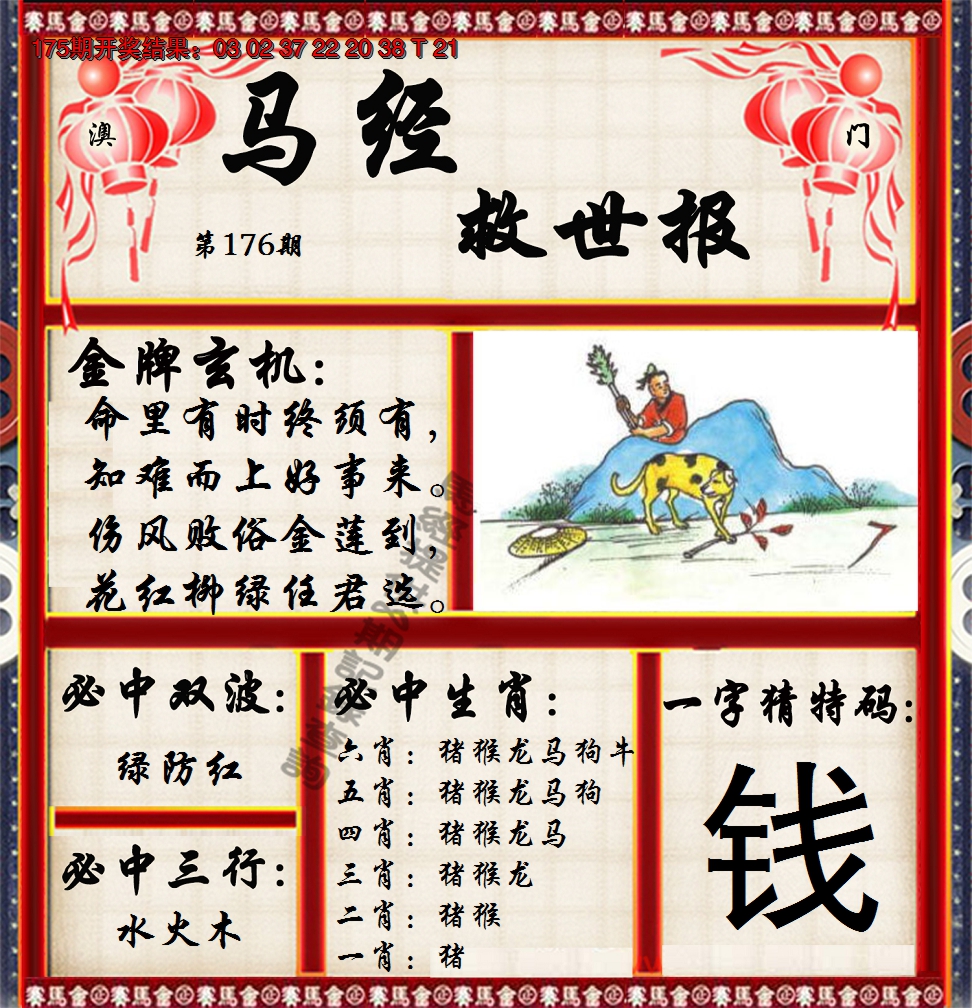 赛馬會
175期开奖结果：03 02 37 22 20 38 T 21
澳门
马经
救世报
第176期
金牌玄机：
命里有时终须有，
知难而上好事来。
伤风败俗金莲到，
花红柳绿任君选。
必中双波：
绿防红
必中三行：
水火木
必中生肖：
六肖：猪猴龙马狗牛
五肖：猪猴龙马狗
四肖：猪猴龙马
三肖：猪猴龙
二肖：猪猴
一肖：猪
一字猜特码：
钱